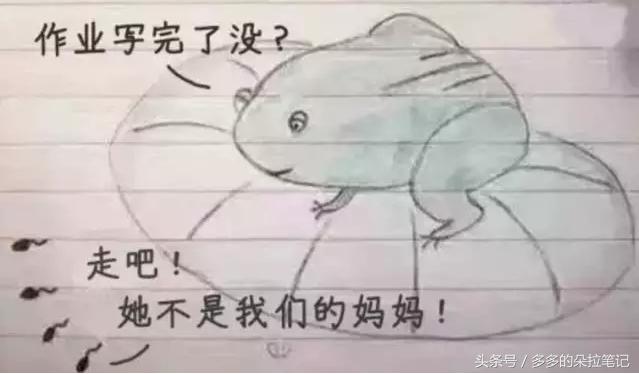 作业写完了没？
走吧！
她不是我们的妈妈！
头条号 / 多多的朵拉笔记